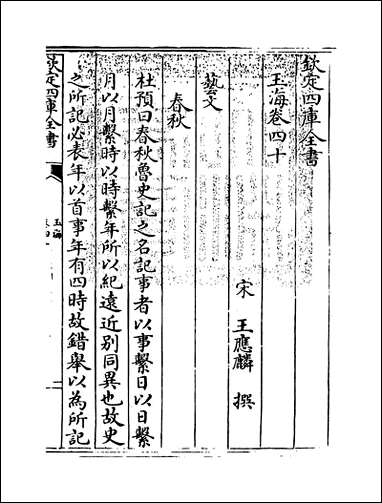 欽定四庫全書
玉海卷四十
宋 王應麟 撰
藝文
春秋
杜預曰春秋魯史記之名記事者以事繫日以日繫
月以月繫時以時繫年所以紀遠近別同異也故史
之所記必表年以首事年有四時故錯舉以為所記
欽定四庫全書
玉海